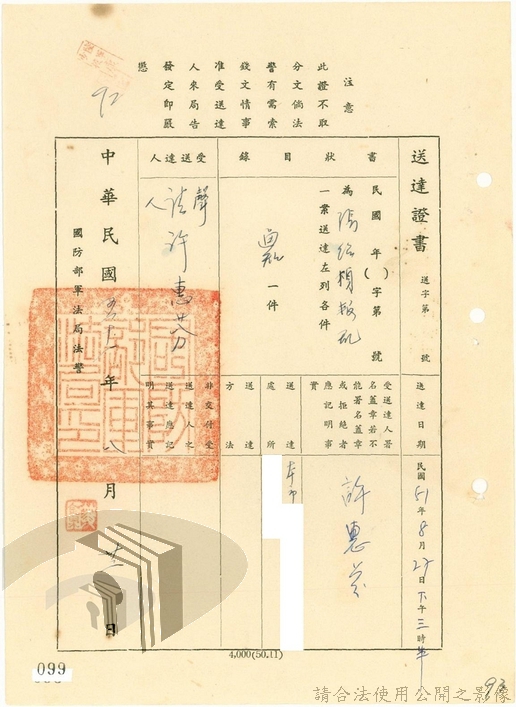 注意
此證不取
分文倘法
警有需索
錢文情事
准受送達
人來局告
發定即嚴
懲
92
送達證書
送字第 號
送達日期
民國51年8月27日下午三時半
書狀目錄
民國 年( )字第 號
為
一案送達左列各件
一件
受送達人署
名蓋章若不
能署名蓋章
或拒絕者
應記明事
實
許惠芬
送達處所
送達方法
受送達人
聲請人
許惠芬
非交付受
送達人之
送達應記
明其事實
中華民國五十一年八月廿一日
國防部軍法局法警
4,000(50.11)
099
93
請合法使用公開之影像